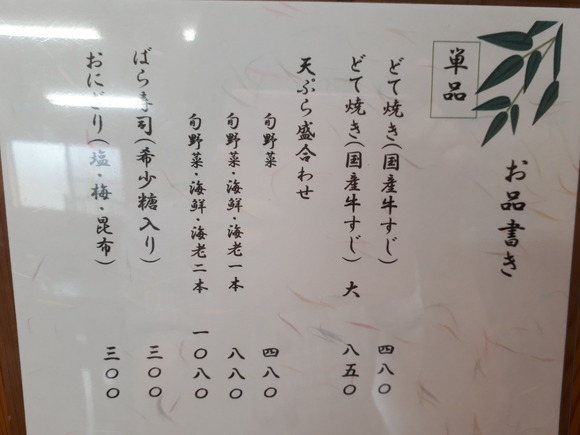 お品書き
単品
どて焼き(国産牛すじ) 四八〇
どて焼き(国産牛すじ) 大 八五〇
天ぷら盛合わせ
旬野菜 四八〇
旬野菜・海鮮・海老一本 八八〇
旬野菜・海鮮・海老二本 一〇八〇
ばら寿司(希少糖入り) 三〇〇
おにぎり(塩・梅・昆布) 三〇〇